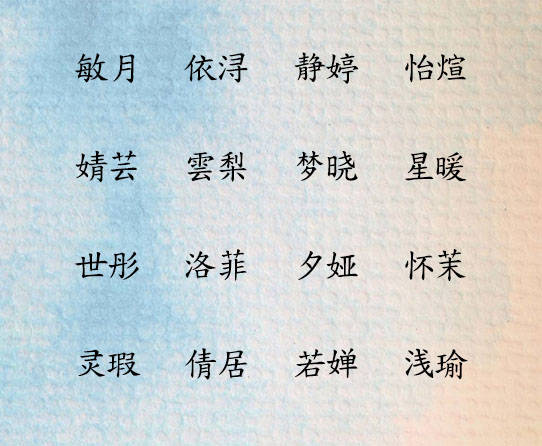 敏月 依浔 静婷 怡煊
婧芸 雲梨 梦晓 星暖
世彤 洛菲 夕娅 怀茉
灵瑕 倩居 若婵 浅瑜